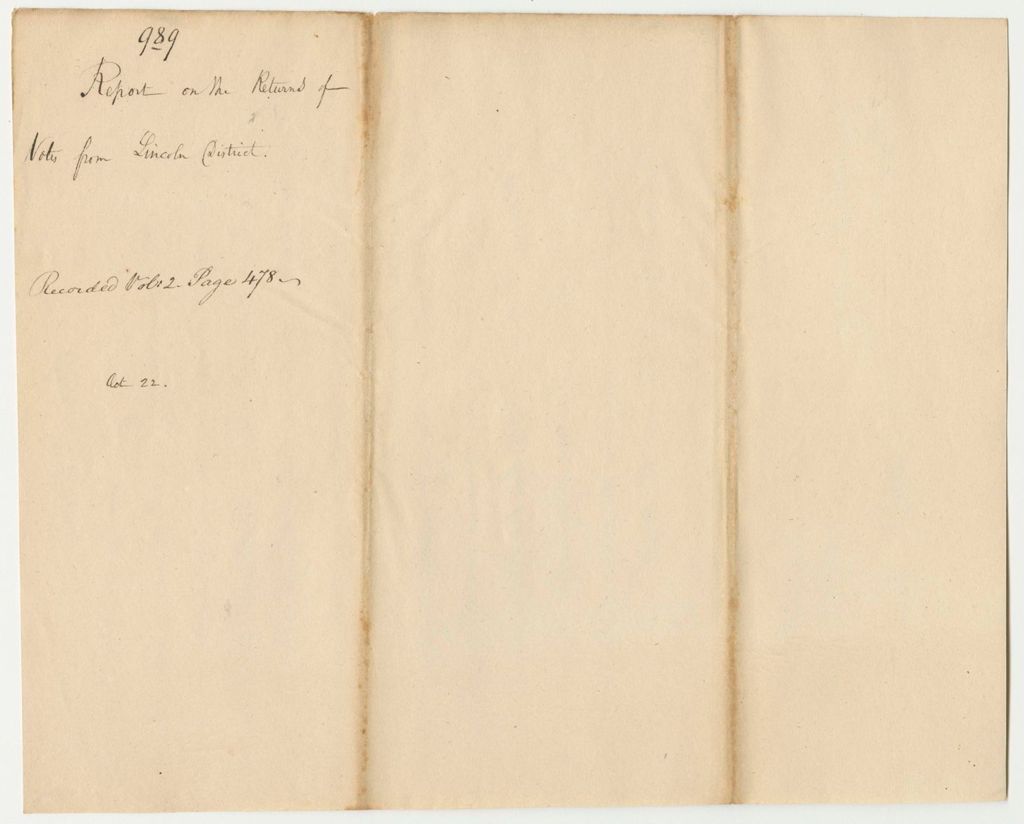 989
Report on the Returns of
Votes from Lincoln District.
Recorded Vol: 2. Page 478
Oct 22.